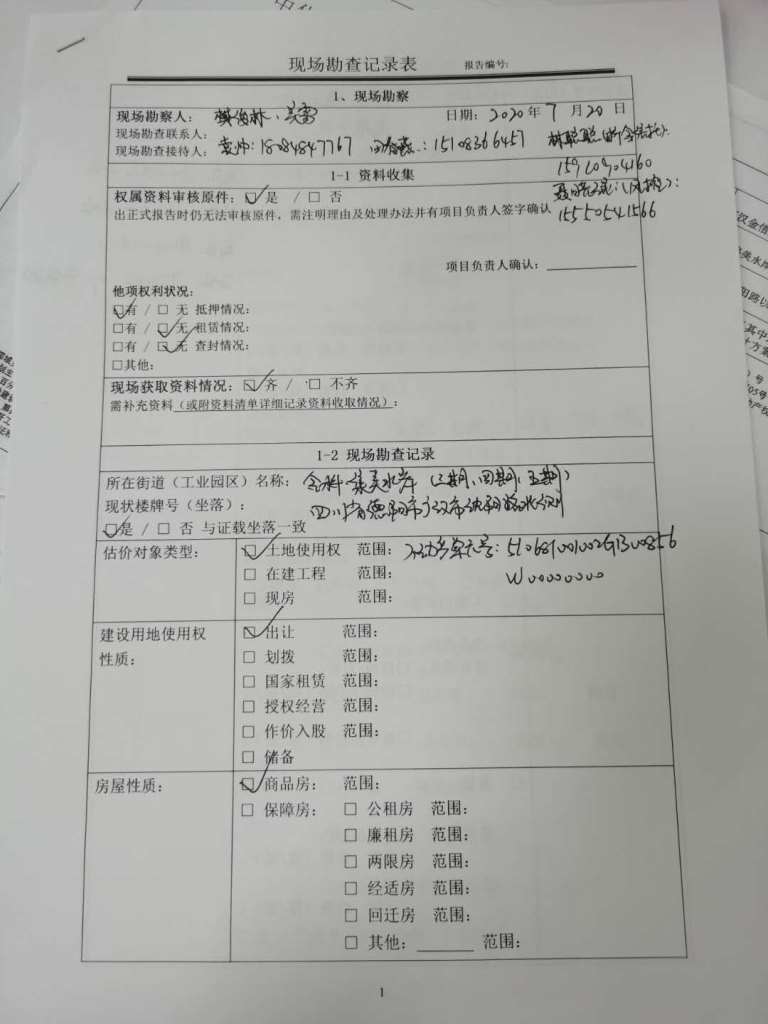 现场勘查记录表 报告编号:
1、现场勘察
现场勘察人: 日期: 2020 年 7 月 20 日
现场勘查联系人:
现场勘查接待人: 18084847767 15108366457
1-1 资料收集 15910904160
权属资料审核原件: ☑ 是 / ☐ 否
出正式报告时仍无法审核原件, 需注明理由及处理办法并有项目负责人签字确认 15550541566
项目负责人确认:
他项权利状况:
☑有 / ☐ 无 抵押情况:
☐有 / ☑ 无 租赁情况:
☐有 / ☑ 无 查封情况:
☐其他:
现场获取资料情况: ☑ 齐 / ☐ 不齐
需补充资料(或附资料清单详细记录资料收取情况):
1-2 现场勘查记录
所在街道(工业园区)名称: 金科·集美水岸(三期、四期、五期)
现状楼牌号(坐落): 四川省德阳市广汉市
☑是 / ☐ 否 与证载坐落一致
估价对象类型: ☑ 土地使用权 范围: 不动产单元号: 510681001002GB00856
W00000000
☐ 在建工程 范围:
☐ 现房 范围:
建设用地使用权 ☑ 出让 范围:
性质: ☐ 划拨 范围:
☐ 国家租赁 范围:
☐ 授权经营 范围:
☐ 作价入股 范围:
☐ 储备
房屋性质: ☑ 商品房: 范围:
☐ 保障房: ☐ 公租房 范围:
☐ 廉租房 范围:
☐ 两限房 范围:
☐ 经适房 范围:
☐ 回迁房 范围:
☐ 其他: 范围:
1